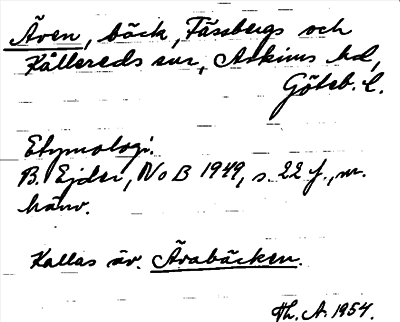 Även, bäck, Fässbergs och
Kållereds snr, Askims hd,
Göteb. l.
Etymologi.
B. Ejder, NoB 1949, s. 22 f., m.
hänv.
Kallas äv. Åvabäcken.
Th. A. 1954.